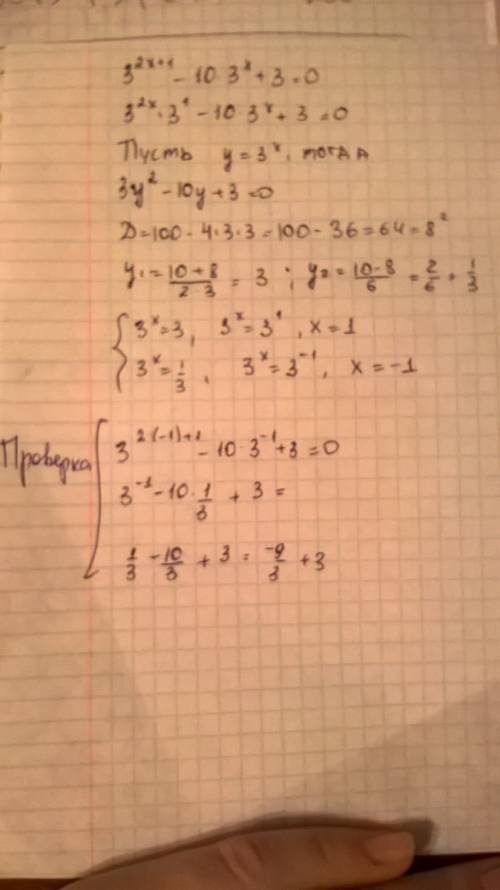 3^{2x+1} - 10·3^x + 3 = 0
3^{2x}·3^1 - 10·3^x + 3 = 0
Пусть y = 3^x, тогда
3y^2 - 10y + 3 = 0
D = 100 - 4·3·3 = 100 - 36 = 64 = 8^2
y_1 = \frac{10+8}{2·3} = 3 ; y_2 = \frac{10-8}{6} = \frac{2}{6} = \frac{1}{3}
{ 3^x = 3, 3^x = 3^1, x = 1
3^x = \frac{1}{3}, 3^x = 3^{-1}, x = -1
Проверка [ 3^{2(-1)+1} - 10·3^{-1} + 3 = 0
3^{-1} - 10·\frac{1}{3} + 3 =
\frac{1}{3} - \frac{10}{3} + 3 = \frac{-9}{3} + 3